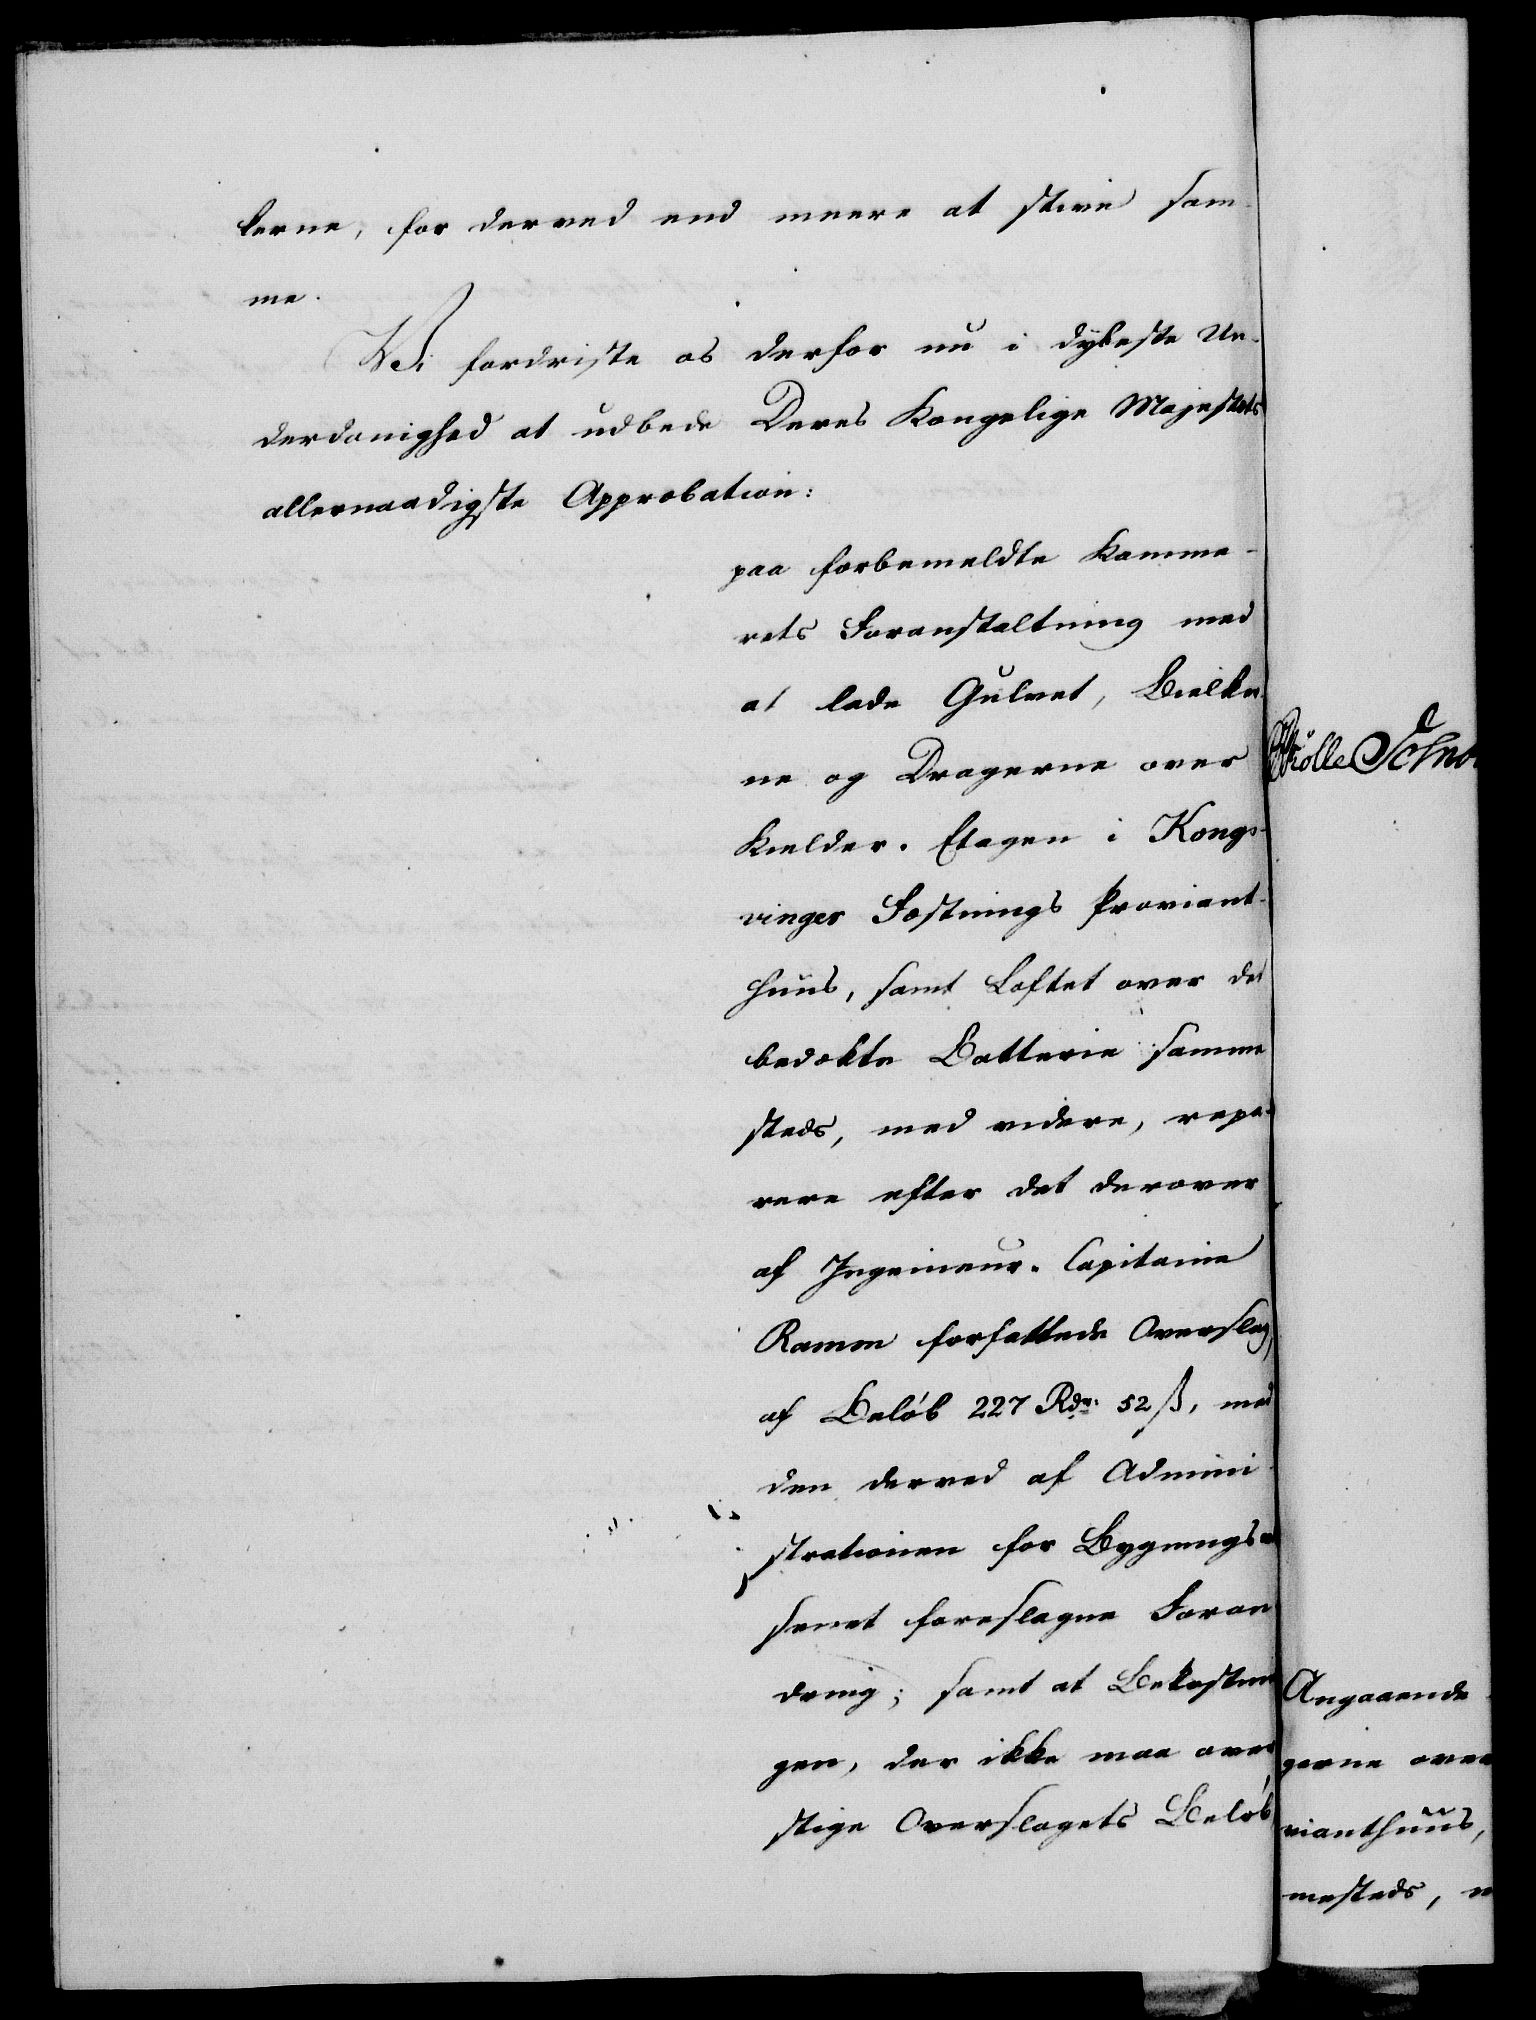 lerne, for derved end meere at stive sam-
me.
Vi fordriste os derfor nu i dybeste Un-
derdanighed at udbede Deres Kongelige Majestæts
allernaadigste Approbation:
paa forbemeldte Kamme-
rets Foranstaltning med
at lade Gulvet, Bielker-
ne og Dragerne over
Kielder-Etagen i Kongs-
vinger Fæstnings Proviant-
huus, samt Loftet over det
bedækte Batterie samme
steds, med videre, repa-
rere efter det derover
af Ingenieur-Capitaine
Ramm forfattede Overslag,
af Beløb 227 Rdr. 52 ß, med
den derved af Admini-
strationen for Bygnings-
senet foreslagne Foran-
dring; samt at Bekostnin-
gen, der ikke maa over
stige Overslagets Beløb
Angaaende
gerne over
vianthuus,
mesteds,